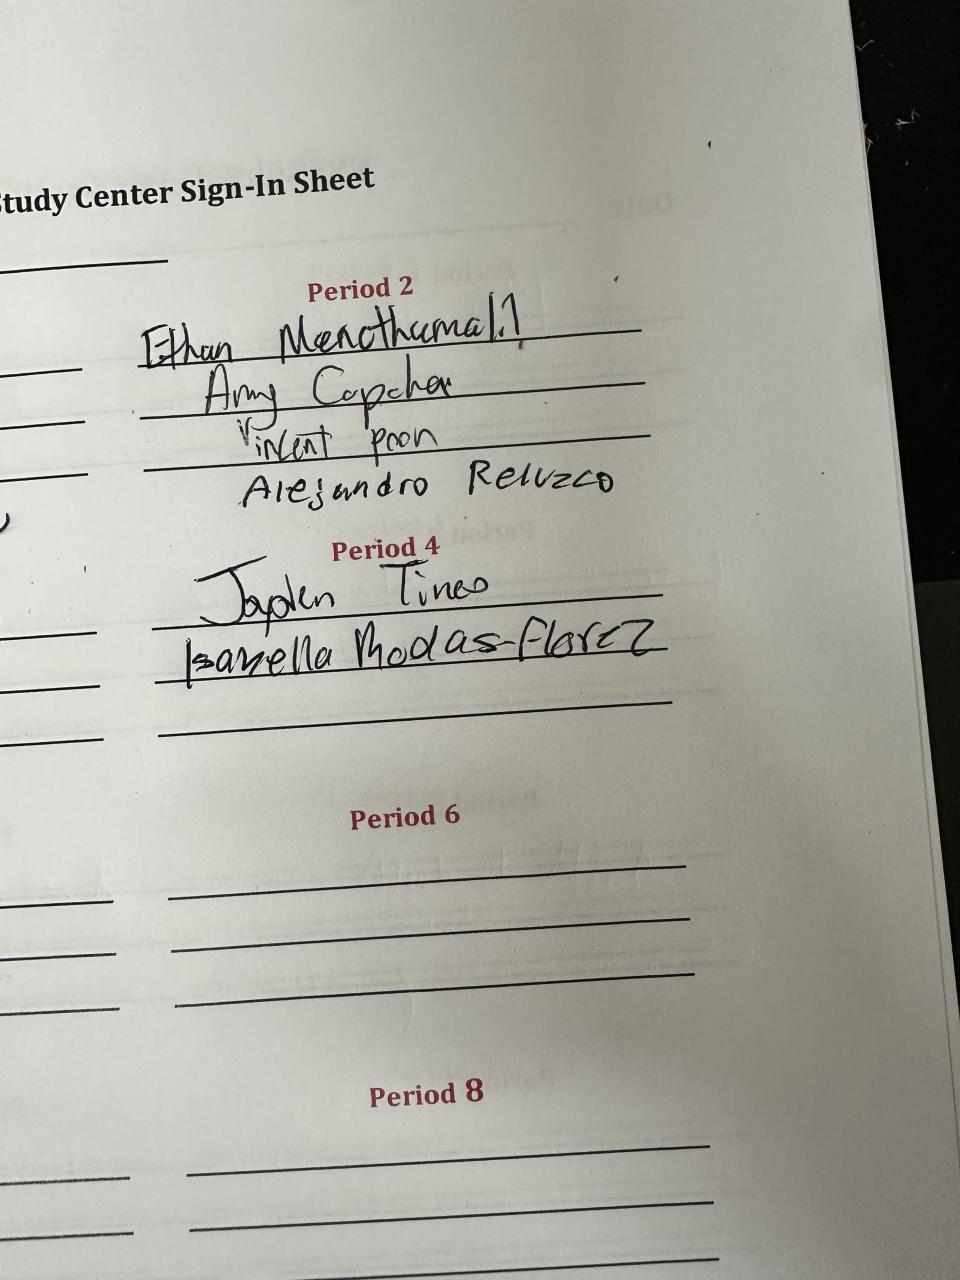 Study Center Sign-In Sheet
Period 2
Ethan
Amy Capcha
Vincent poon
Alejandro Reluzco
Period 4
Jayden Tineo
Isabella Rhodas-Florez
Period 6
Period 8